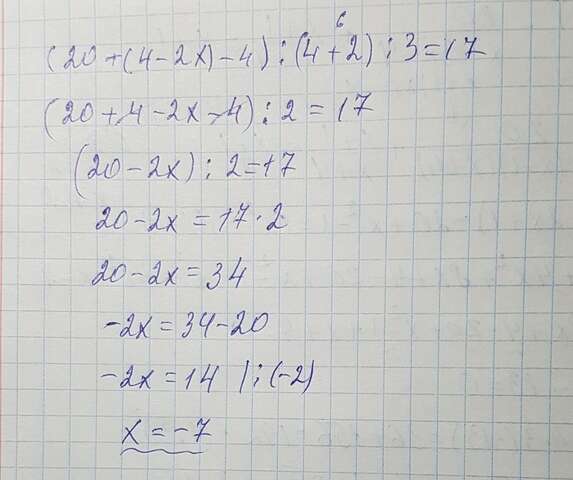 6
(20+(4-2x)-4):(4+2):3=17
(20+4-2x-4):2=17
(20-2x):2=17
20-2x=17·2
20-2x=34
-2x=34-20
-2x=14 |:(-2)
x=-7